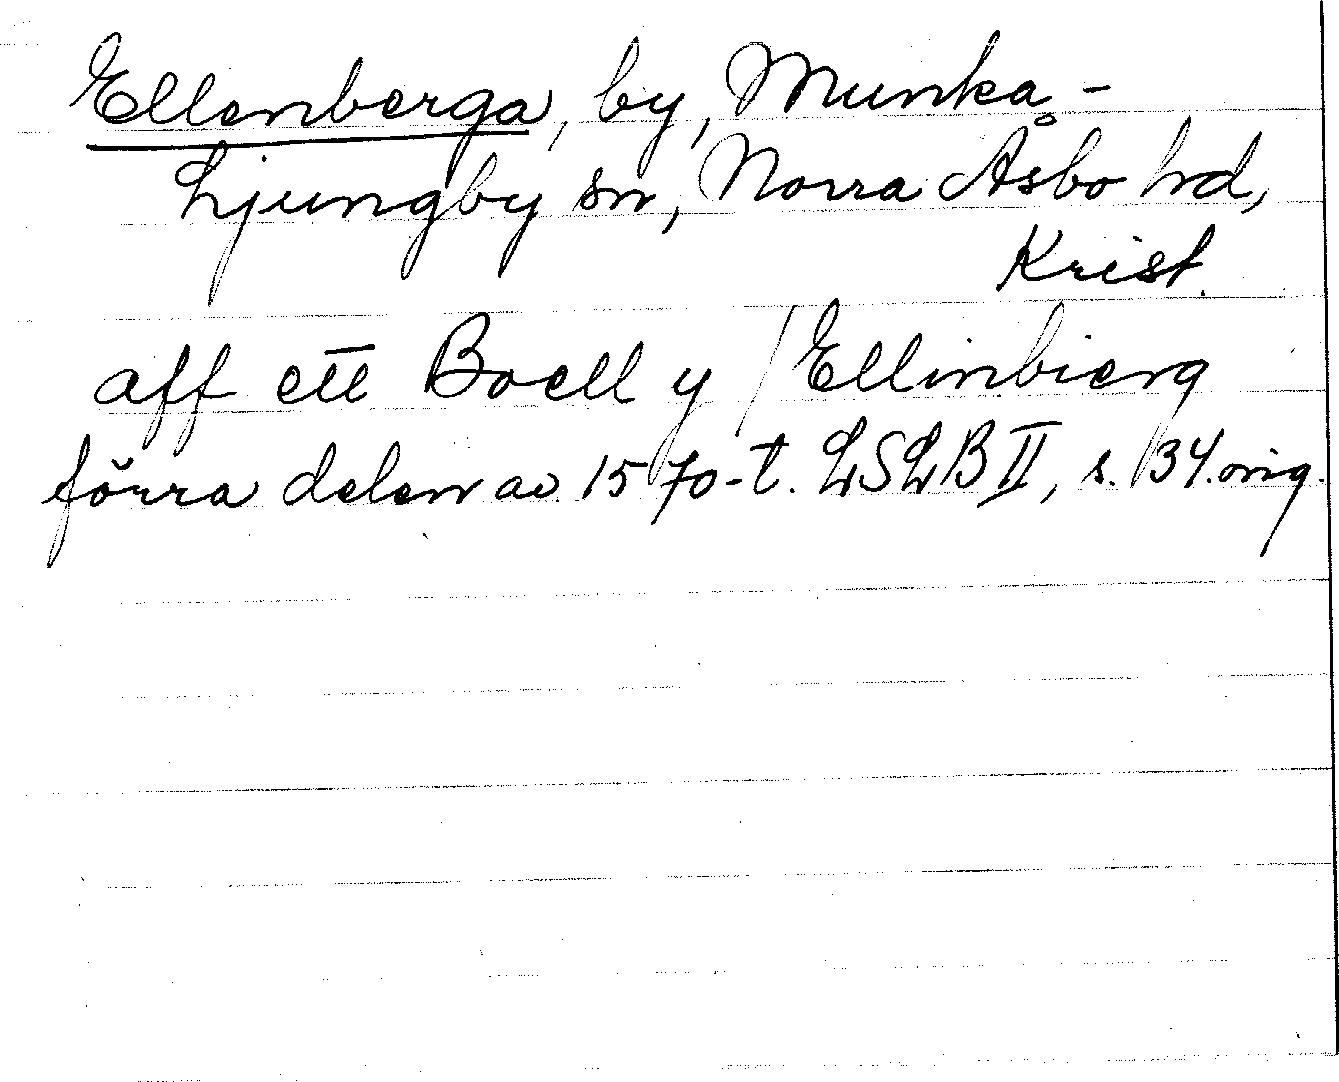 Ellenberga, by, Munka-
Ljungby sn, Norra Åsbo hd,
Krist.
aff ett Boell y / Ellinbierg
förra delen av 1570-t. LSLB II, s. 134. orig.